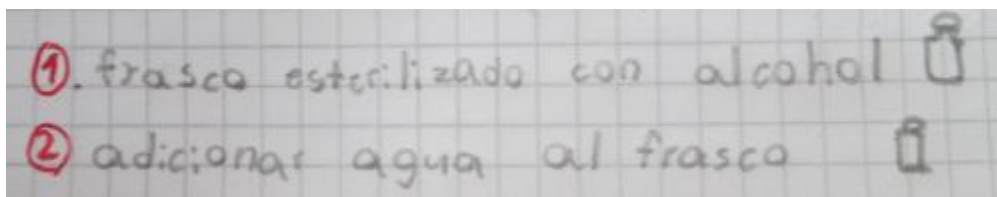 ①. frasco esterilizado con alcohol
② adicionar agua al frasco